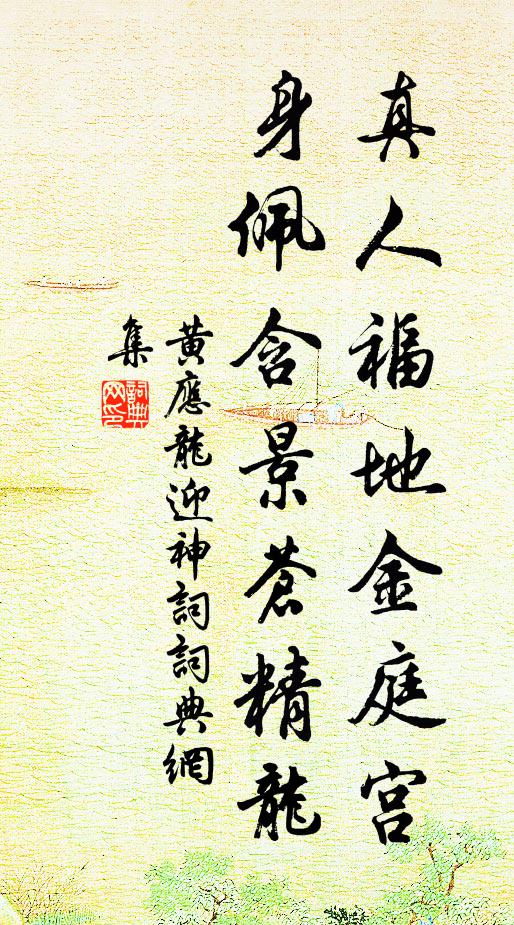 真人福地金庭宮
身佩含景蒼精龍
黃應龍迎神詞詞典網
集
詞典
网印